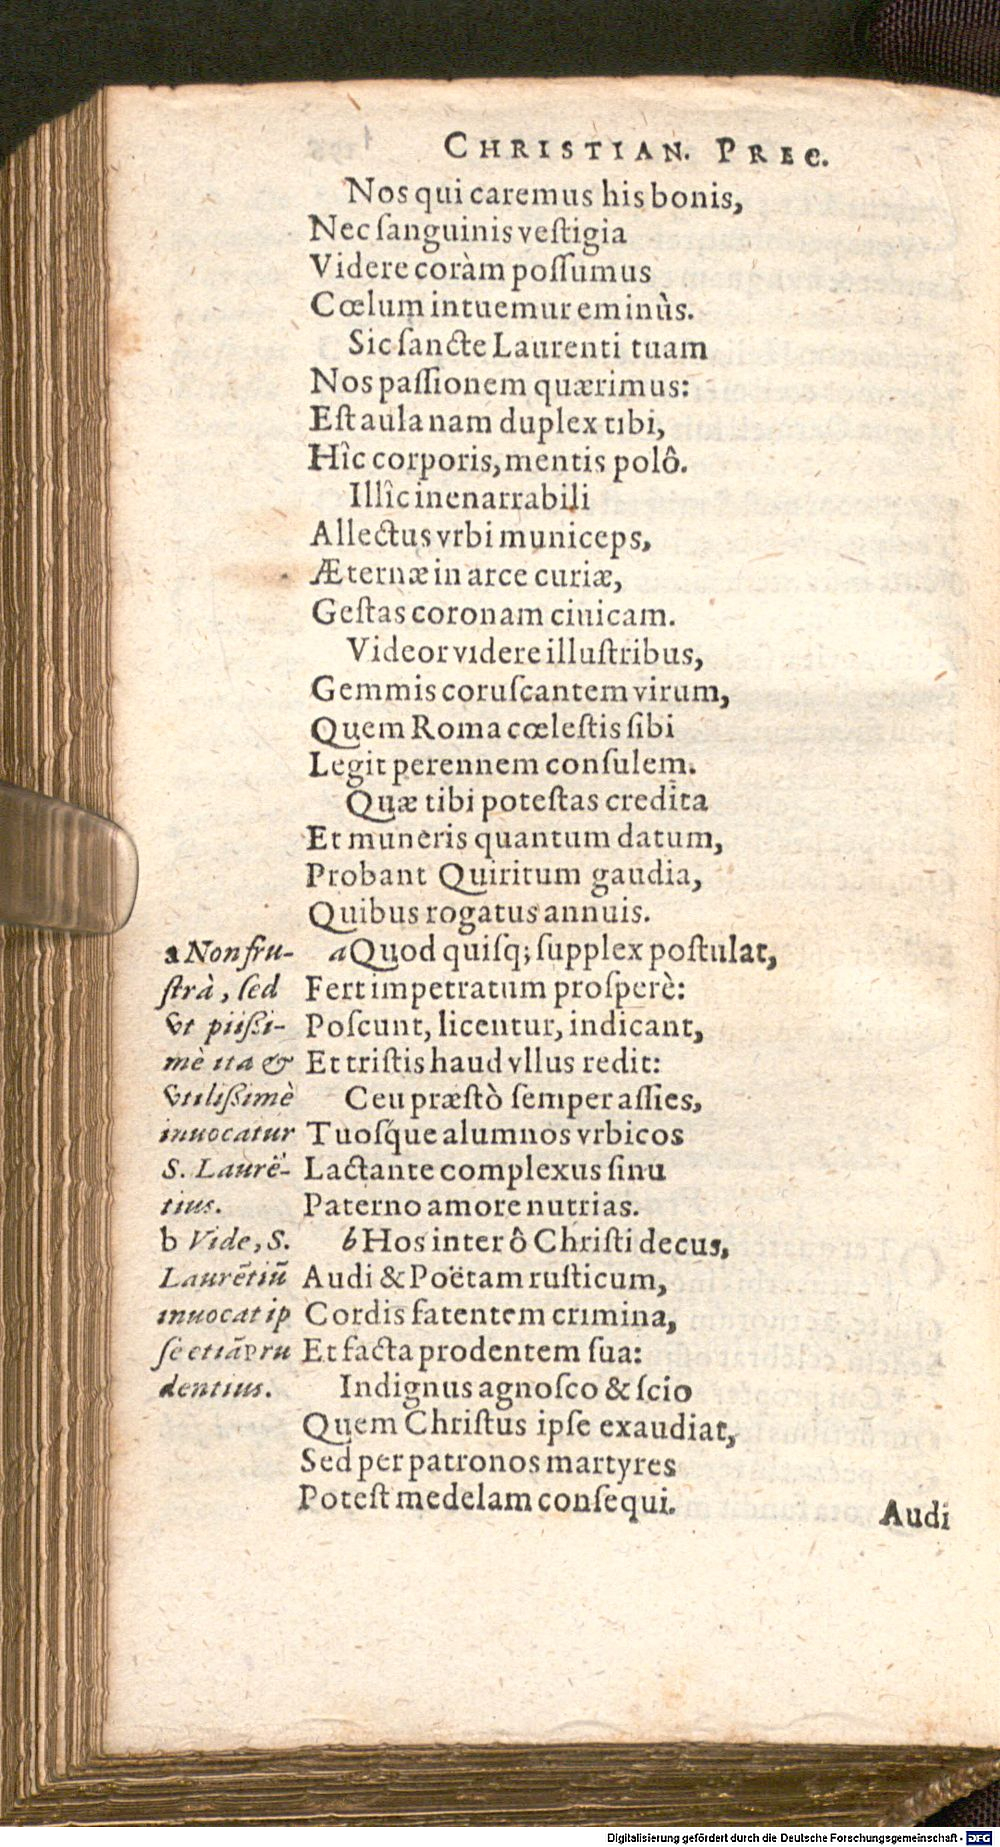 CHRISTIAN. PREC.
Nos qui caremus his bonis,
Nec ſanguinis veſtigia
Videre coràm poſſumus
Cœlum intuemur eminùs.
Sic ſancte Laurenti tuam
Nos paſſionem quærimus:
Eſt aula nam duplex tibi,
Hîc corporis, mentis polô.
Illîc inenarrabili
Allectus vrbi municeps,
Æternæ in arce curiæ,
Geſtas coronam ciuicam.
Videor videre illuſtribus,
Gemmis coruſcantem virum,
Quem Roma cœleſtis ſibi
Legit perennem conſulem.
Quæ tibi poteſtas credita
Et muneris quantum datum,
Probant Quiritum gaudia,
Quibus rogatus annuis.
a Quod quiſq; ſupplex poſtulat,
Fert impetratum proſperè:
Poſcunt, licentur, indicant,
Et triſtis haud vllus redit:
Ceu præſtò ſemper aſſies,
Tuoſq́ue alumnos vrbicos
Lactante complexus ſinu
Paterno amore nutrias.
b Hos inter ô Chriſti decus,
Audi & Poëtam ruſticum,
Cordis fatentem crimina,
Et facta prodentem ſua:
Indignus agnoſco & ſcio
Quem Chriſtus ipſe exaudiat,
Sed per patronos martyres
Poteſt medelam conſequi.
Audi
a Non fru-
ſtrà, ſed
vt piißi-
mè ita &
vtilißimè
inuocatur
S. Laurē-
tius.
b Vide, S.
Laurētiū
inuocat ip
ſe etiā Pru
dentius.
Digitalisierung gefördert durch die Deutsche Forschungsgemeinschaft - DFG